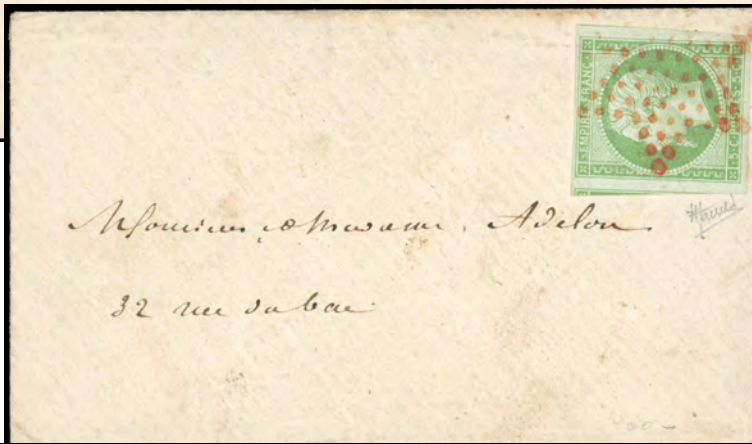 EMPIRE FRANC
5 · C · ES · 5
Monsieur & Madame Adelon
32 rue du bac